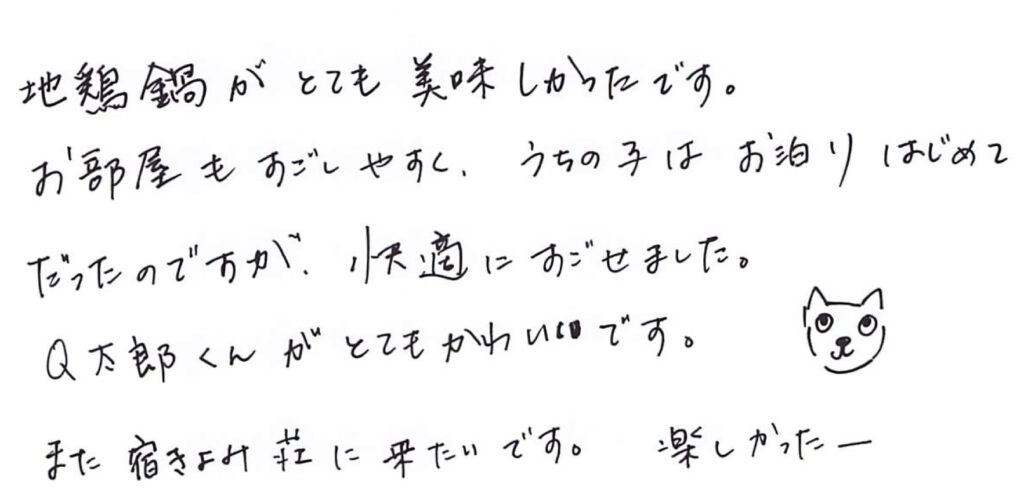 地鶏鍋がとても美味しかったです。
お部屋もすごしやすく、うちの子はお泊りはじめて
だったのですが、快適にすごせました。
Q太郎くんがとてもかわいいです。
また宿きよみ荘に来たいです。 楽しかったー